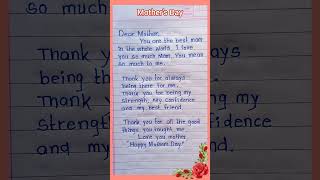 Mother's Day
Dear Mother,
You are the best mom
in the whole world. I love
you so much Mom. You mean
so much to me.
Thank you for always
being there for me.
Thank you for being my
strength, my confidence
and my best friend.
Thank you for all the good
things you taught me.
Love you mother
"Happy Mothers Day."